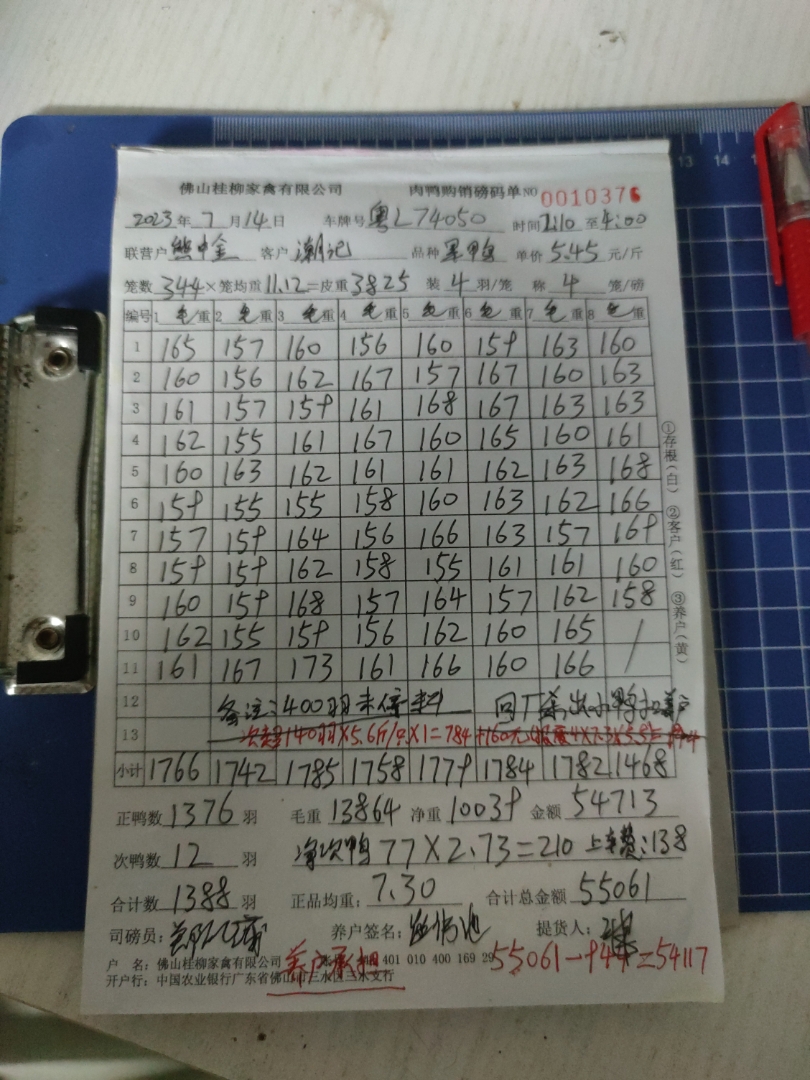 佛山桂柳家禽有限公司 肉鸭购销磅码单 NO 0010376
2023年7月14日 车牌号 粤L74050 时间 1:10 至 4:00
联营户 熊中金 客户 潮记 品种 黑鸭 单价 5.45 元/斤
笼数 344 × 笼均重 11.12 = 皮重 3825 装 4 羽/笼 称 4 笼/磅
编号 1 毛重 2 毛重 3 毛重 4 毛重 5 毛重 6 毛重 7 毛重 8 毛重
1 165 157 160 156 160 159 163 160
2 160 156 162 167 157 167 160 163
3 161 157 159 161 168 167 163 163
4 162 155 161 167 160 165 160 161
5 160 163 162 161 161 162 163 168
6 159 155 155 158 160 163 162 166
7 157 159 164 156 166 163 157 169
8 159 159 162 158 155 161 161 160
9 160 159 168 157 164 157 162 158
10 162 155 159 156 162 160 165 /
11 161 167 173 161 166 160 166 /
12 备注:400羽未停料 回厂杀出小鸭扣养户
13 140羽×5.6斤/只×1=784+160元
小计 1766 1742 1785 1758 1779 1784 1782 1468
正鸭数 1376 羽 毛重 13864 净重 10039 金额 54713
次鸭数 12 羽 净次鸭 77×2.73=210 上车费:138
合计数 1388 羽 正品均重: 7.30 合计总金额 55061
司磅员: 养户签名: 提货人:
户 名: 佛山桂柳家禽有限公司 401 010 400 169 29 养户承担 55061-944=54117
开户行: 中国农业银行广东省佛山市三水区三水支行
①存根(白) ②客户(红) ③养户(黄)
13 14